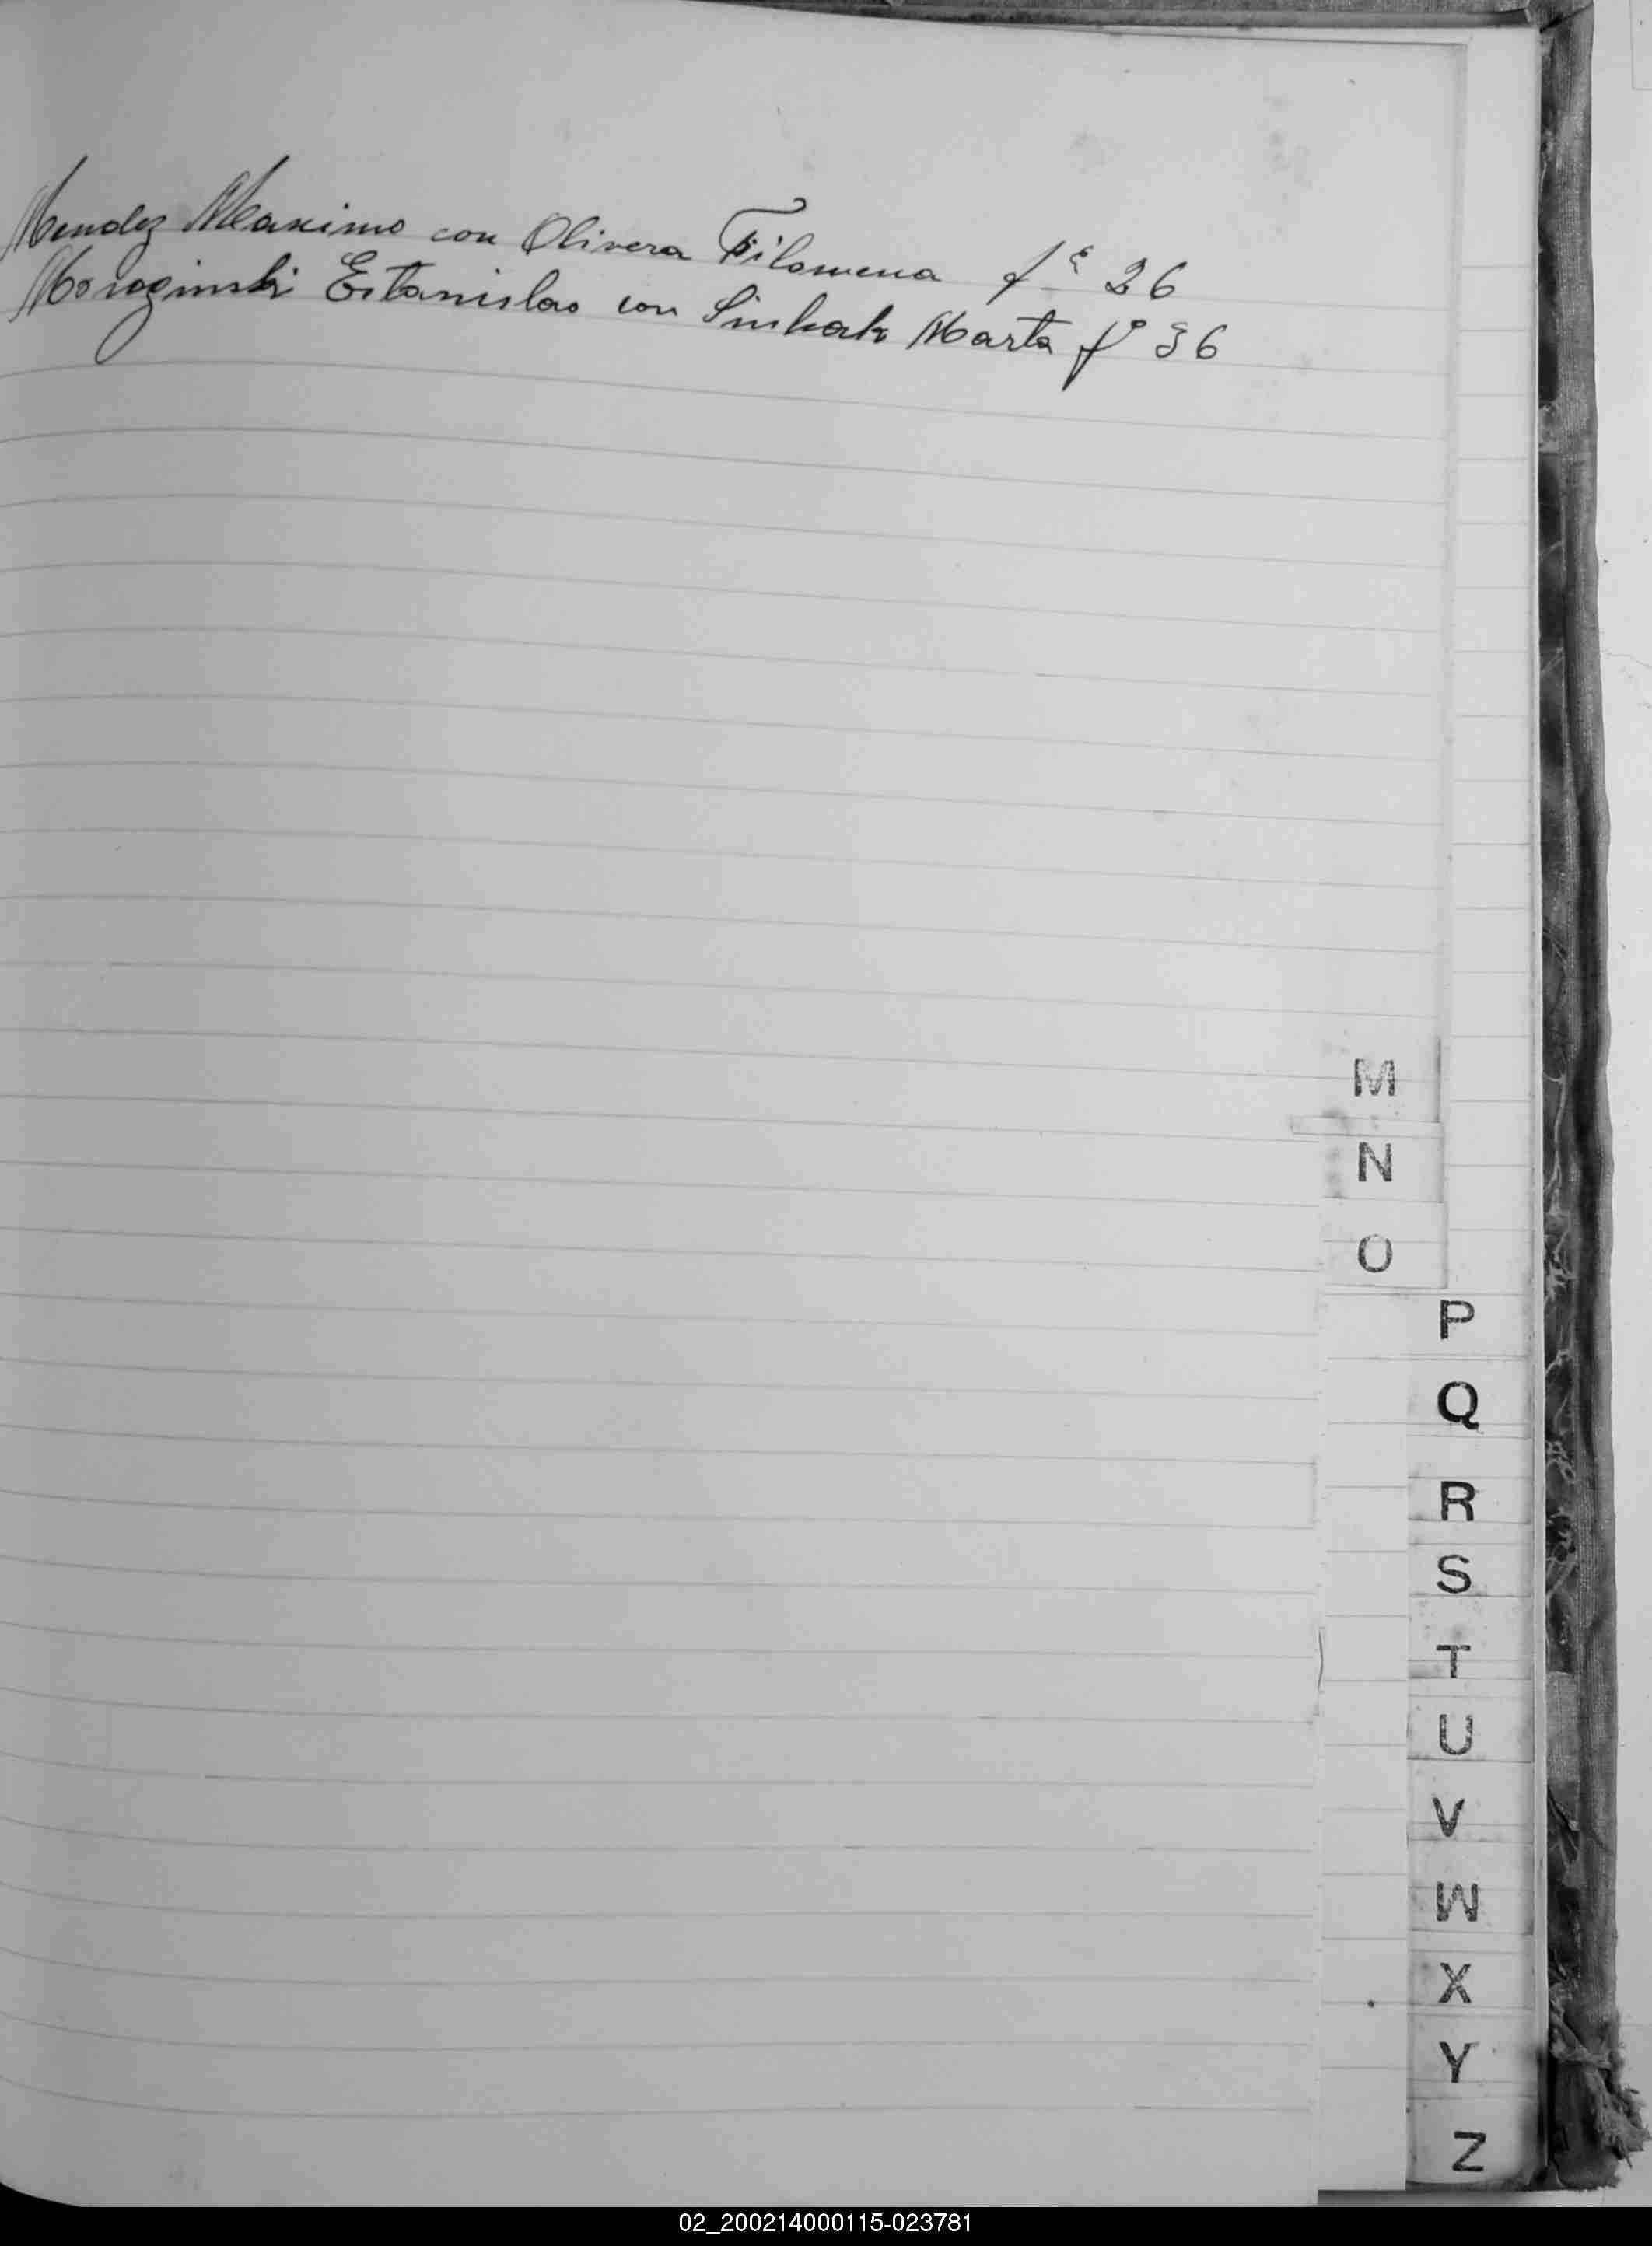 Mendez Maximo con Olivera Filomena fº 26
Moroginski Estanislao con Sinkak Marta fº 36
M
N
O
P
Q
R
S
T
U
V
W
X
Y
Z
02_200214000115-023781